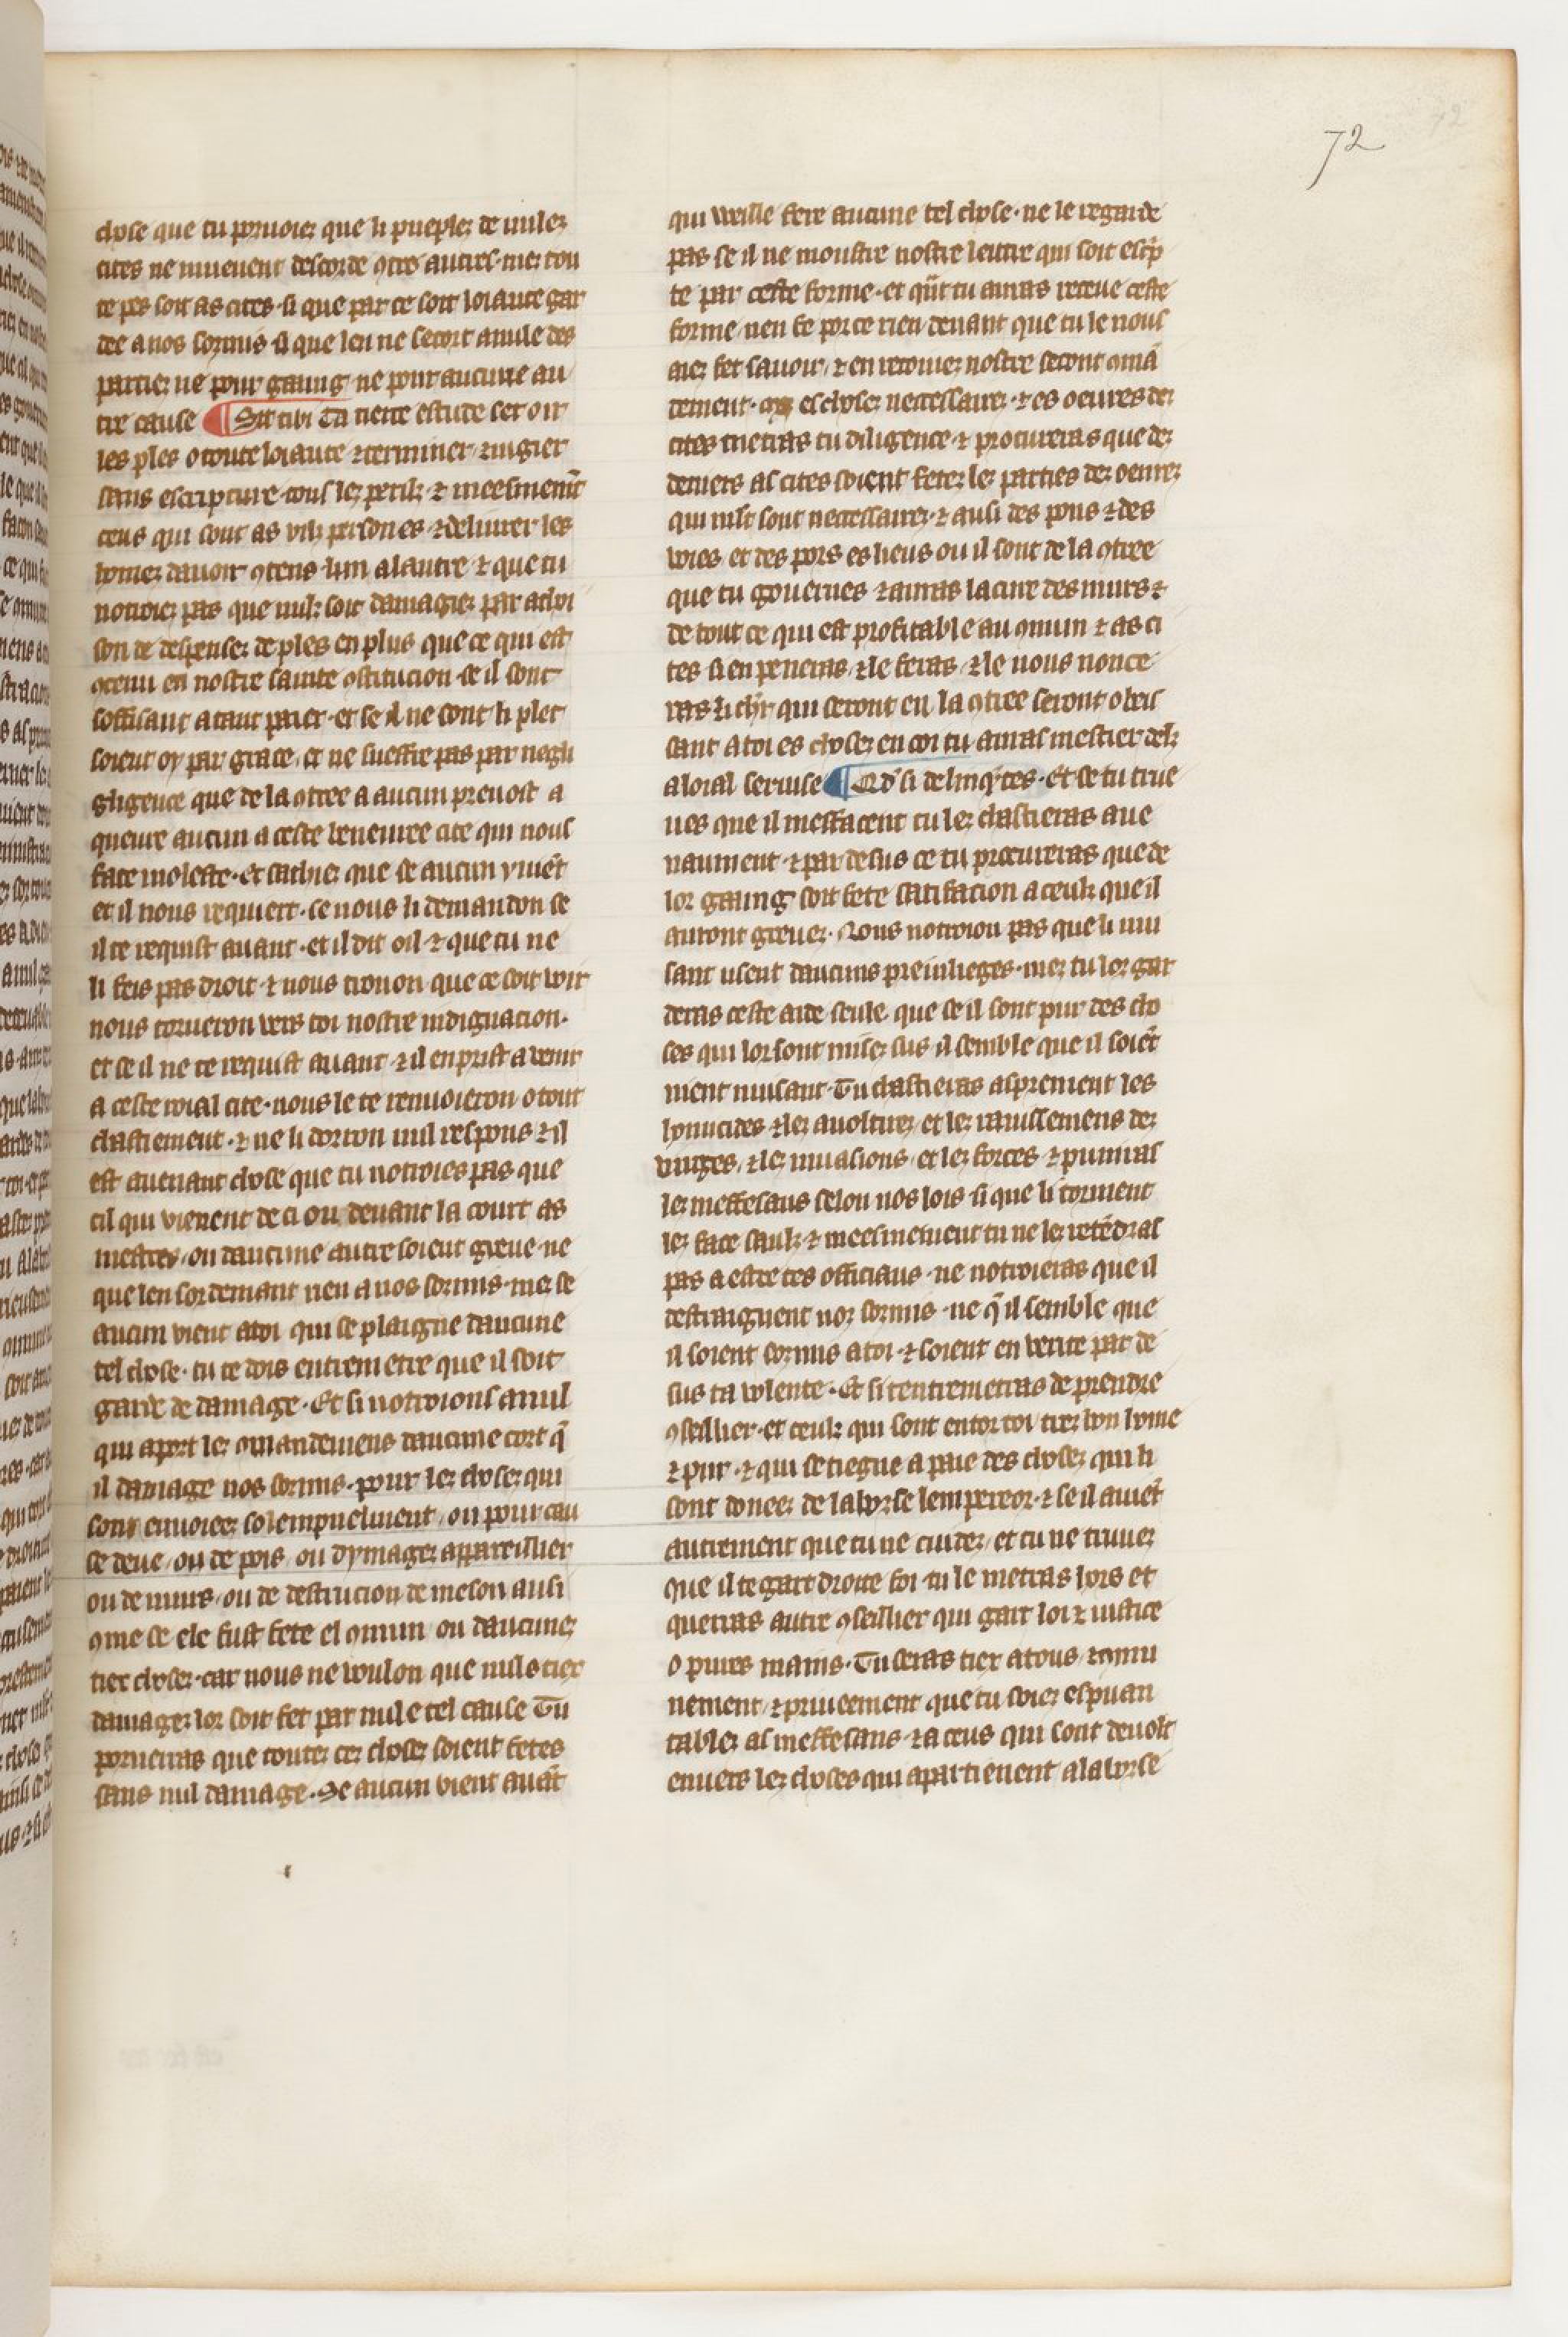 72
chose que tu pornoiez que li pueplez de nulez
cites ne muevent descorde ꝯtre autres · mez tou
te pes soit as cites · si que par ce soit loiaute gar
dee a nos sozmis · si que len ne secort a nule des
partiez ne pour gaaing ne pour aucune au
tre cause ¶ Sit tibi Ta tierce estude ser oir
les ples o toute loiaute ⁊ terminer ⁊ iugier
sans escripture tous lez perilz ⁊ meesmem̃t
ceus qui sont as vils persones ⁊ delivrer les
homez davoir ꝯtens lun a lautre ⁊ que tu
notroiez pas que nulz soit damagiez par achoi
son de despensez de ples en plus que ce qui est
ꝯtenu en nostre sainte ꝯstitucion se il sont
soffisant a tant paier · et se il ne sont li plet
soient oy par grace, et ne sueffre pas par negli
gligence que de la ꝯtree a aucun prevost a
queure aucun a ceste beneuree cite qui nous
face moleste · Et sachiez que se aucun y viẽt
et il nous requiert · se nous li demandon se
il te requist avant · et il dit oil ⁊ que tu ne
li feis pas droit ⁊ nous trouon que ce soit voir
nous torneron vers toi nostre indignacion ·
et se il ne te requist avant ⁊ il enprist a venir
a ceste roial cite · nous le te renvoieron o tout
chastiement · ⁊ ne li dorron nul respons ⁊ il
est avenant chose que tu notroies pas que
cil qui vienent de ci ou devant la court as
mestres ou daucune autre soient greue ne
que len lor demant rien a nos sozmis · mez se
aucun vient a toi qui se plaigne daucune
tel chose · tu te dois entremetre que il soit
garde de damage · Et si notroions a nul
qui aport lez ꝯmandemens daucune cort q̃
il damage nos sozmis · pour lez chosez qui
sont envoieez solempnelment / ou pour cau
se deue / ou de pois / ou dymagez appareillier
ou de murs / ou de destrucion de meson ausi
ꝯme se ele fust fete el ꝯmun / ou daucunez
tiex chosez · car nous ne voulon que nuls tiex
damagez lor soit fet par nule tel cause Tu
porueiras que toutez cez chosez soient fetes
sans nul damage · Se aucun vient avãt
qui veille fere aucune tel chose · ne le regarde
pas se il ne moustre nostre lettre qui soit escp̃
te par ceste forme · et qñt tu auras receue ceste
forme / nen fe por ce rien devant que tu le nous
aiez fet savoir / ⁊ en recoivez nostre secont ꝯmã
dement · es chosez neccessairez · ⁊ es oeuvres dez
cites metras tu diligence · ⁊ procureras que dez
deniers as cites soient fetez lez parties dez oeuvrez
qui mlt̃ sont neccessairez · ⁊ ausi des pons ⁊ des
voies et des pors es lieus ou il sont de la ꝯtree
que tu gouvernes ⁊ auras la cure des murs ⁊
de tout ce qui est profitable au ꝯmun ⁊ as ci
tes si en peneras ⁊ le feras / ⁊ le nous nonce
ras li chr̃ qui seront en la ꝯtree seront obeis
sant a toi es chosez en coi tu auras mestier delz
a loial servise ¶ Qd̕ si delinq̃tes · Et se tu true
ves que il meffacent tu lez chastieras ave
naument · ⁊ par desus ce tu procureras que de
lor gaaing soit fete satifacion a ceulz que il
auront grevez · Nous notroion pas que li nui
sant usent daucuns previlieges · mez tu lor gar
deras ceste aide seule que se il sont pur des cho
ses qui lor sont mises sus il semble que il soiẽt
ment nuisant · Tu chastieras asprement les
homicides ⁊ lez avoltirez et lez ravissemens dez
virges / ⁊ lez invasions / et lez forces ⁊ puniras
lez meffesans selon nos lois si que li torment
lez face saulz ⁊ meesmement tu ne lez retẽdras
pas a estre tes officiaus · ne notroieras que il
destraignent noz sozmis · ne q̃ il semble que
il soient sozmis a toi · ⁊ soient en verite par de
sus ta volente · Et si tentremetras de prendre
ꝯseillier · et ceulz qui sont entor toi tiex bon home
⁊ pur · ⁊ qui se tiegne a paie des chosez qui li
sont doneez de la borse lempereor · ⁊ se il aviẽt
autrement que tu ne cuidez / et tu ne truvez
que il te gart droite foi · tu le metras hors et
querras autre ꝯseillier qui gart loi ⁊ iustice
o pures mains · Tu seras tiex a tous / ⁊ ꝯmu
nement / ⁊ priveement que tu soiez espuan
tablez as meffesans · ⁊ a ceus qui sont devost
envers lez choses qui apartienent a la borse